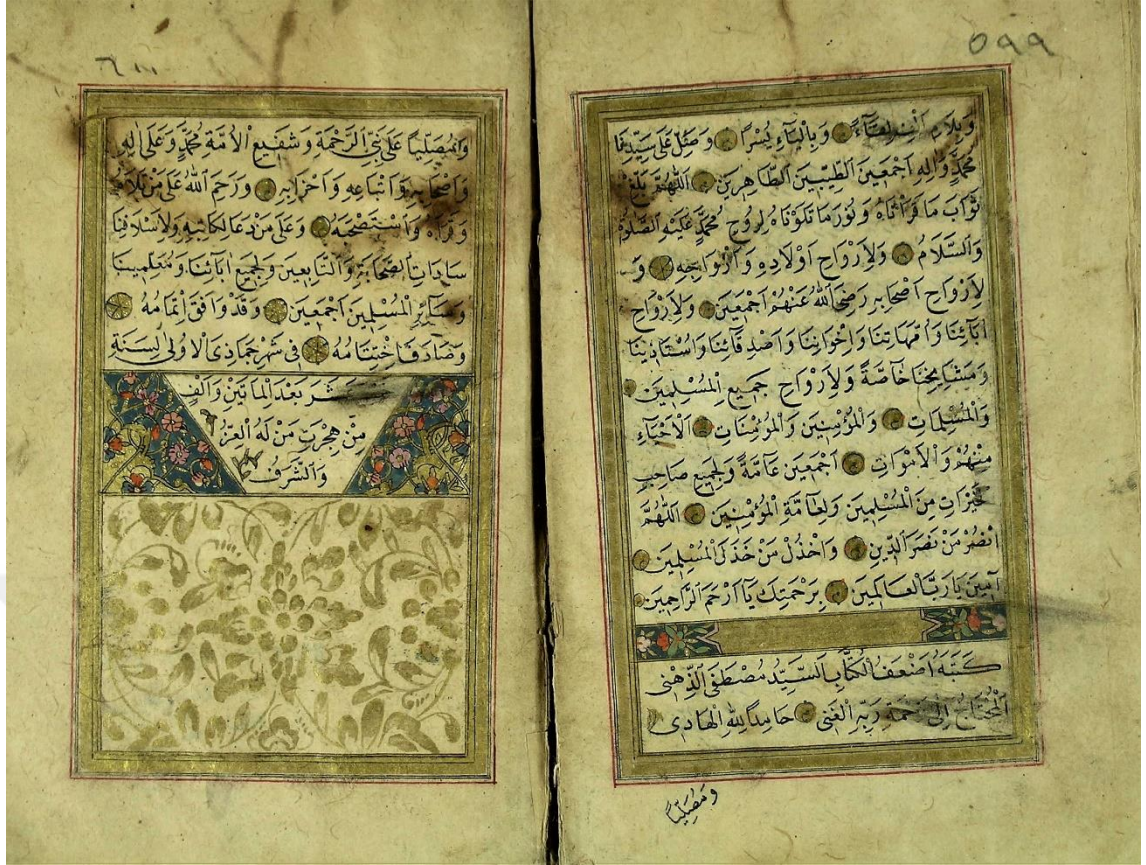 ٥٩٩
وَبِلَامِ الْفٍ لِقَاءً وَبِالْيَاءِ يُسْرًا وَصَلِّ عَلَى سَيِّدِنَا
مُحَمَّدٍ وَاٰلِهِ اَجْمَعِينَ الطَّيِّبِينَ الطَّاهِرِينَ اَللّٰهُمَّ بَلِّغْ
ثَوَابَ مَا قَرَأْنَاهُ وَنُورَ مَا تَلَوْنَاهُ لِرُوحِ مُحَمَّدٍ عَلَيْهِ الصَّلٰوةُ
وَالسَّلَامُ وَلِاَرْوَاحِ اَوْلَادِهِ وَاَزْوَاجِهِ وَ
لِاَرْوَاحِ اَصْحَابِهِ رَضِيَ اللّٰهُ عَنْهُمْ اَجْمَعِينَ وَلِاَرْوَاحِ
اٰبَائِنَا وَاُمَّهَاتِنَا وَاِخْوَانِنَا وَاَصْدِقَائِنَا وَاُسْتَاذِينَا
وَمَشَايِخِنَا خَاصَّةً وَلِاَرْوَاحِ جَمِيعِ الْمُسْلِمِينَ
وَالْمُسْلِمَاتِ وَالْمُؤْمِنِينَ وَالْمُؤْمِنَاتِ اَلْاَحْيَاءِ
مِنْهُمْ وَالْاَمْوَاتِ اَجْمَعِينَ عَامَّةً وَلِجَمِيعِ صَاحِبِ
خَيْرَاتٍ مِنَ الْمُسْلِمِينَ وَلِعَامَّةِ الْمُؤْمِنِينَ اَللّٰهُمَّ
انْصُرْ مَنْ نَصَرَ الدِّينَ وَاخْذُلْ مَنْ خَذَلَ الْمُسْلِمِينَ
اٰمِينَ يَا رَبَّ الْعَالَمِينَ بِرَحْمَتِكَ يَا اَرْحَمَ الرَّاحِمِينَ
كَتَبَهُ اَضْعَفُ الْكُتَّابِ السَّيِّدُ مُصْطَفَى الذِّهْنِى
اَلْمُحْتَاجُ اِلَى رَحْمَةِ رَبِّهِ الْغَنِىِّ حَامِدًا لِلّٰهِ الْهَادِى
وَمُصَلِّيًا
٦٠٠
وَمُصَلِّيًا عَلَى نَبِيِّ الرَّحْمَةِ وَشَفِيعِ الْاُمَّةِ مُحَمَّدٍ وَعَلَى اٰلِهِ
وَاَصْحَابِهِ وَاَتْبَاعِهِ وَاَحْزَابِهِ وَرَحِمَ اللّٰهُ عَلَى مَنْ تَلَاهُ
وَقَرَاَهُ وَاسْتَصْحَبَهُ وَعَلَى مَنْ دَعَا لِكَاتِبِهِ وَلِاَسْلَافِنَا
سَادَاتِ الصَّحَابَةِ وَالتَّابِعِينَ وَلِجَمِيعِ اٰبَائِنَا وَمُعَلِّمِينَا
وَسَائِرِ الْمُسْلِمِينَ اَجْمَعِينَ وَقَدْ وَافَقَ اِتْمَامُهُ
وَصَادَفَ اخْتِتَامُهُ فِى شَهْرِ جُمَادِى الْاُولٰى لِسَنَةِ
بَعْدَ الْمِائَتَيْنِ وَاَلْفٍ
مِنْ هِجْرَتِ مَنْ لَهُ الْعِزُّ
وَالشَّرَفُ